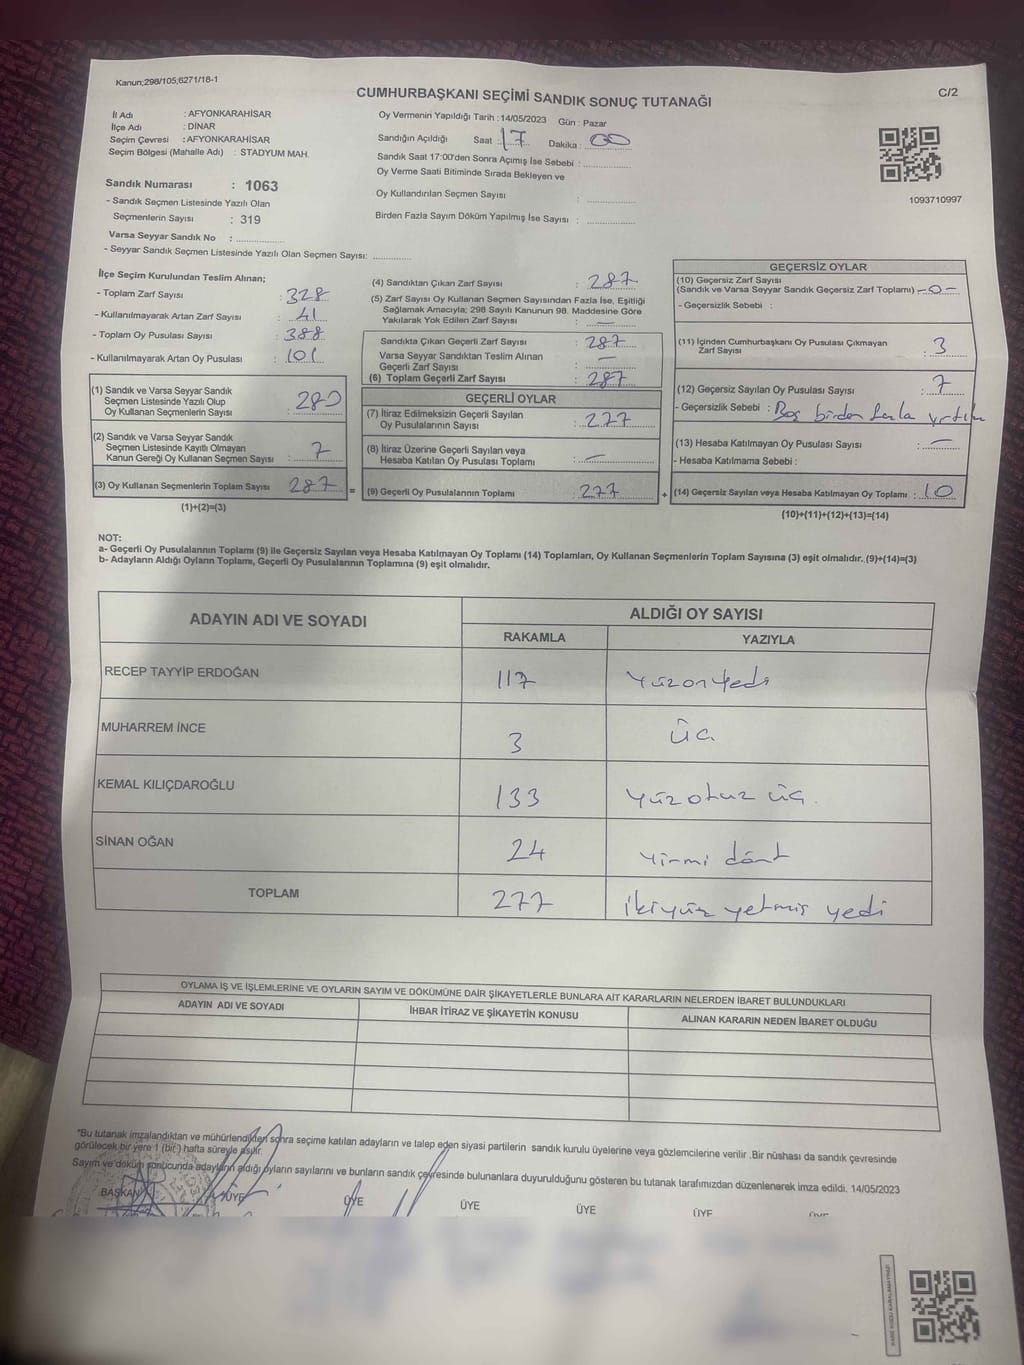 Kanun;298/105,6271/18-1
CUMHURBAŞKANI SEÇİMİ SANDIK SONUÇ TUTANAĞI
C/2
İl Adı : AFYONKARAHİSAR
İlçe Adı : DİNAR
Seçim Çevresi : AFYONKARAHİSAR
Seçim Bölgesi (Mahalle Adı) : STADYUM MAH.
Oy Vermenin Yapıldığı Tarih : 14/05/2023 Gün : Pazar
Sandığın Açıldığı Saat : 17 Dakika : 00
Sandık Saat 17:00'den Sonra Açımış İse Sebebi :
Oy Verme Saati Bitiminde Sırada Bekleyen ve
Oy Kullandırılan Seçmen Sayısı :
Birden Fazla Sayım Döküm Yapılmış İse Sayısı :
1093710997
Sandık Numarası : 1063
- Sandık Seçmen Listesinde Yazılı Olan
Seçmenlerin Sayısı : 319
Varsa Seyyar Sandık No :
- Seyyar Sandık Seçmen Listesinde Yazılı Olan Seçmen Sayısı:
İlçe Seçim Kurulundan Teslim Alınan;
- Toplam Zarf Sayısı : 328
- Kullanılmayarak Artan Zarf Sayısı : 41
- Toplam Oy Pusulası Sayısı : 388
- Kullanılmayarak Artan Oy Pusulası : 101
(1) Sandık ve Varsa Seyyar Sandık
Seçmen Listesinde Yazılı Olup
Oy Kullanan Seçmenlerin Sayısı : 280
(2) Sandık ve Varsa Seyyar Sandık
Seçmen Listesinde Kayıtlı Olmayan
Kanun Gereği Oy Kullanan Seçmen Sayısı : 7
(3) Oy Kullanan Seçmenlerin Toplam Sayısı 287 =
(1)+(2)=(3)
(4) Sandıktan Çıkan Zarf Sayısı : 287
(5) Zarf Sayısı Oy Kullanan Seçmen Sayısından Fazla İse, Eşitliği
Sağlamak Amacıyla; 298 Sayılı Kanunun 98. Maddesine Göre
Yakılarak Yok Edilen Zarf Sayısı : —
Sandıkta Çıkan Geçerli Zarf Sayısı : 287
Varsa Seyyar Sandıktan Teslim Alınan
Geçerli Zarf Sayısı : —
(6) Toplam Geçerli Zarf Sayısı : 287
GEÇERLİ OYLAR
(7) İtiraz Edilmeksizin Geçerli Sayılan
Oy Pusulalarının Sayısı : 277
(8) İtiraz Üzerine Geçerli Sayılan veya
Hesaba Katılan Oy Pusulası Toplamı : —
(9) Geçerli Oy Pusulalarının Toplamı : 277 +
GEÇERSİZ OYLAR
(10) Geçersiz Zarf Sayısı
(Sandık ve Varsa Seyyar Sandık Geçersiz Zarf Toplamı) -0-
- Geçersizlik Sebebi :
(11) İçinden Cumhurbaşkanı Oy Pusulası Çıkmayan
Zarf Sayısı : 3
(12) Geçersiz Sayılan Oy Pusulası Sayısı : 7
- Geçersizlik Sebebi : Boş birden fazla yırtık
(13) Hesaba Katılmayan Oy Pusulası Sayısı : —
- Hesaba Katılmama Sebebi :
(14) Geçersiz Sayılan veya Hesaba Katılmayan Oy Toplamı : 10
(10)+(11)+(12)+(13)=(14)
NOT:
a- Geçerli Oy Pusulalarının Toplamı (9) ile Geçersiz Sayılan veya Hesaba Katılmayan Oy Toplamı (14) Toplamları, Oy Kullanan Seçmenlerin Toplam Sayısına (3) eşit olmalıdır. (9)+(14)=(3)
b- Adayların Aldığı Oyların Toplamı, Geçerli Oy Pusulalarının Toplamına (9) eşit olmalıdır.
ADAYIN ADI VE SOYADI ALDIĞI OY SAYISI
RAKAMLA YAZIYLA
RECEP TAYYİP ERDOĞAN 117 Yüzonyedi
MUHARREM İNCE 3 üç
KEMAL KILIÇDAROĞLU 133 yüzotuz üç
SİNAN OĞAN 24 yirmi dört
TOPLAM 277 ikiyüz yetmiş yedi
OYLAMA İŞ VE İŞLEMLERİNE VE OYLARIN SAYIM VE DÖKÜMÜNE DAİR ŞİKAYETLERLE BUNLARA AİT KARARLARIN NELERDEN İBARET BULUNDUKLARI
ADAYIN ADI VE SOYADI İHBAR İTİRAZ VE ŞİKAYETİN KONUSU ALINAN KARARIN NEDEN İBARET OLDUĞU
*Bu tutanak imzalandıktan ve mühürlendikten sonra seçime katılan adayların ve talep eden siyasi partilerin sandık kurulu üyelerine veya gözlemcilerine verilir .Bir nüshası da sandık çevresinde
görülecek bir yere 1 (bir) hafta süreyle asılır.
Sayım ve döküm sonucunda adayların aldığı oyların sayılarını ve bunların sandık çevresinde bulunanlara duyurulduğunu gösteren bu tutanak tarafımızdan düzenlenerek imza edildi. 14/05/2023
BAŞKAN ÜYE ÜYE ÜYE ÜYE ÜYE ÜYE